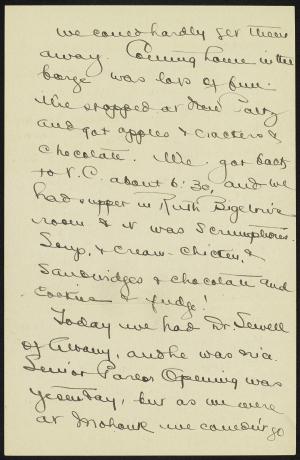 we could hardly get them
away. Coming home in the
barge was lots of fun.
We stopped at New Paltz
and got apples & crackers &
chocolate. We got back
to V.C. about 6:30, and we
had supper in Ruth Bigelow's
room & it was scrumptious.
Soup, & cream-chicken, &
sandwidges & chocolate and
cookies & fudge!
Today we had Dr. Sewell
of Albany, and he was nice.
Senior Parlor Opening was
yesterday, but as we were
at Mohonk we couldn't go